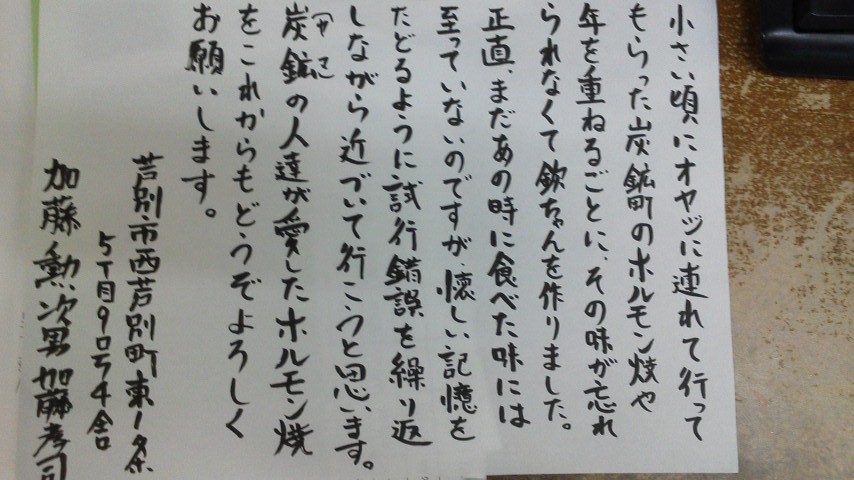 小さい頃にオヤジに連れて行って
もらった炭鉱町のホルモン焼や
年を重ねるごとに、その味が忘れ
られなくて欽ちゃんを作りました。
正直、まだあの時に食べた味には
至っていないのですが、懐しい記憶を
たどるように試行錯誤を繰り返
しながら近づいて行こうと思います。
炭鉱の人達が愛したホルモン焼
をこれからもどうぞよろしく
お願いします。
芦別市西芦別町東1条
5丁目9号54舎
加藤勲次男 加藤孝司